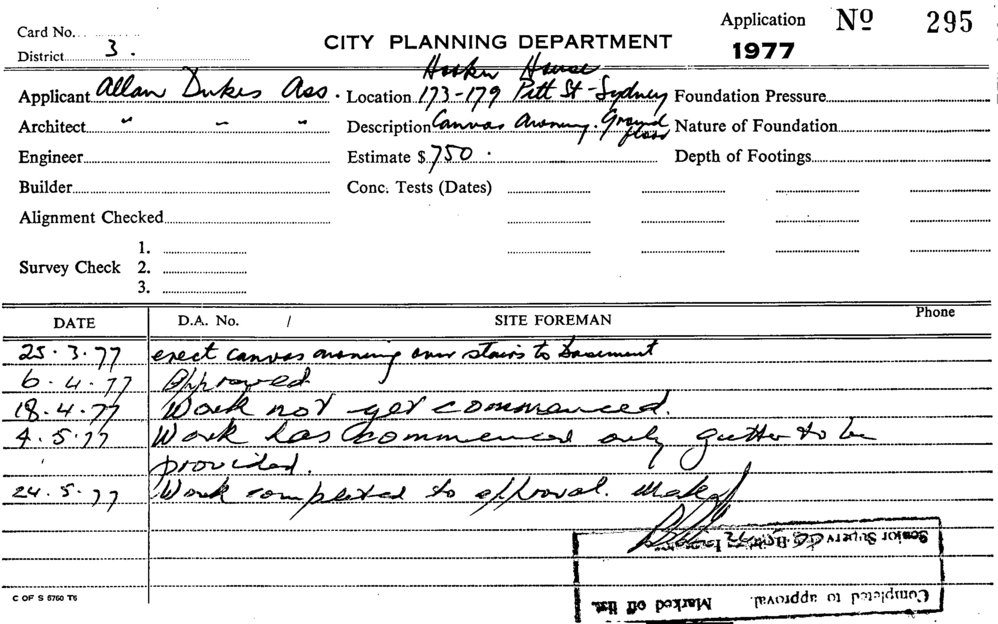 Card No.
Application Nº 295
District 3.
CITY PLANNING DEPARTMENT
1977
Hooker House
Applicant Allan Dukes Ass. Location 173-179 Pitt St-Sydney Foundation Pressure
Architect " " " Description Canvas Awning. Ground floor Nature of Foundation
Engineer Estimate $ 750. Depth of Footings
Builder Conc. Tests (Dates)
Alignment Checked
1.
Survey Check 2.
3.
DATE D.A. No. / SITE FOREMAN Phone
25.3.77 erect canvas awning over stairs to basement
6.4.77 Approved
18.4.77 Work not yet commenced.
4.5.77 Work has commenced only gutter to be
provided.
24.5.77 Work completed to approval.
Completed to approval. Marked off list.
Senior Supervising
C OF S 5760 T5